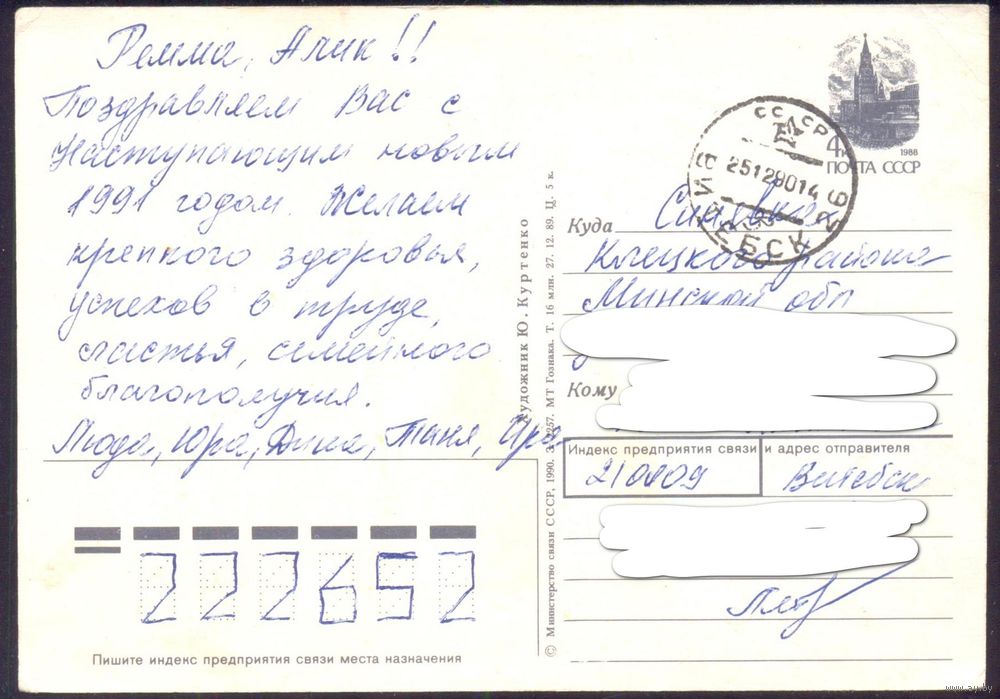 Римма, Алик!!
Поздравляем Вас с
Наступающим новым
1991 годом. Желаем
крепкого здоровья,
успехов в труде,
счастья, семейного
благополучия.
Люда, Юра, Дима, Таня, Ира
Пишите индекс предприятия связи места назначения
222652
© Министерство связи СССР, 1990. З. 257. МТ Гознака. Т. 16 млн. 27. 12. 89. Ц. 5 к.
Художник Ю. Куртенко
4к
1988
ПОЧТА СССР
СССР
25129014
ВИТЕБСК 26
Куда Синявка
Клецкого района
Минской обл
Кому
Индекс предприятия связи и адрес отправителя
210009 Витебск
www.ay.by